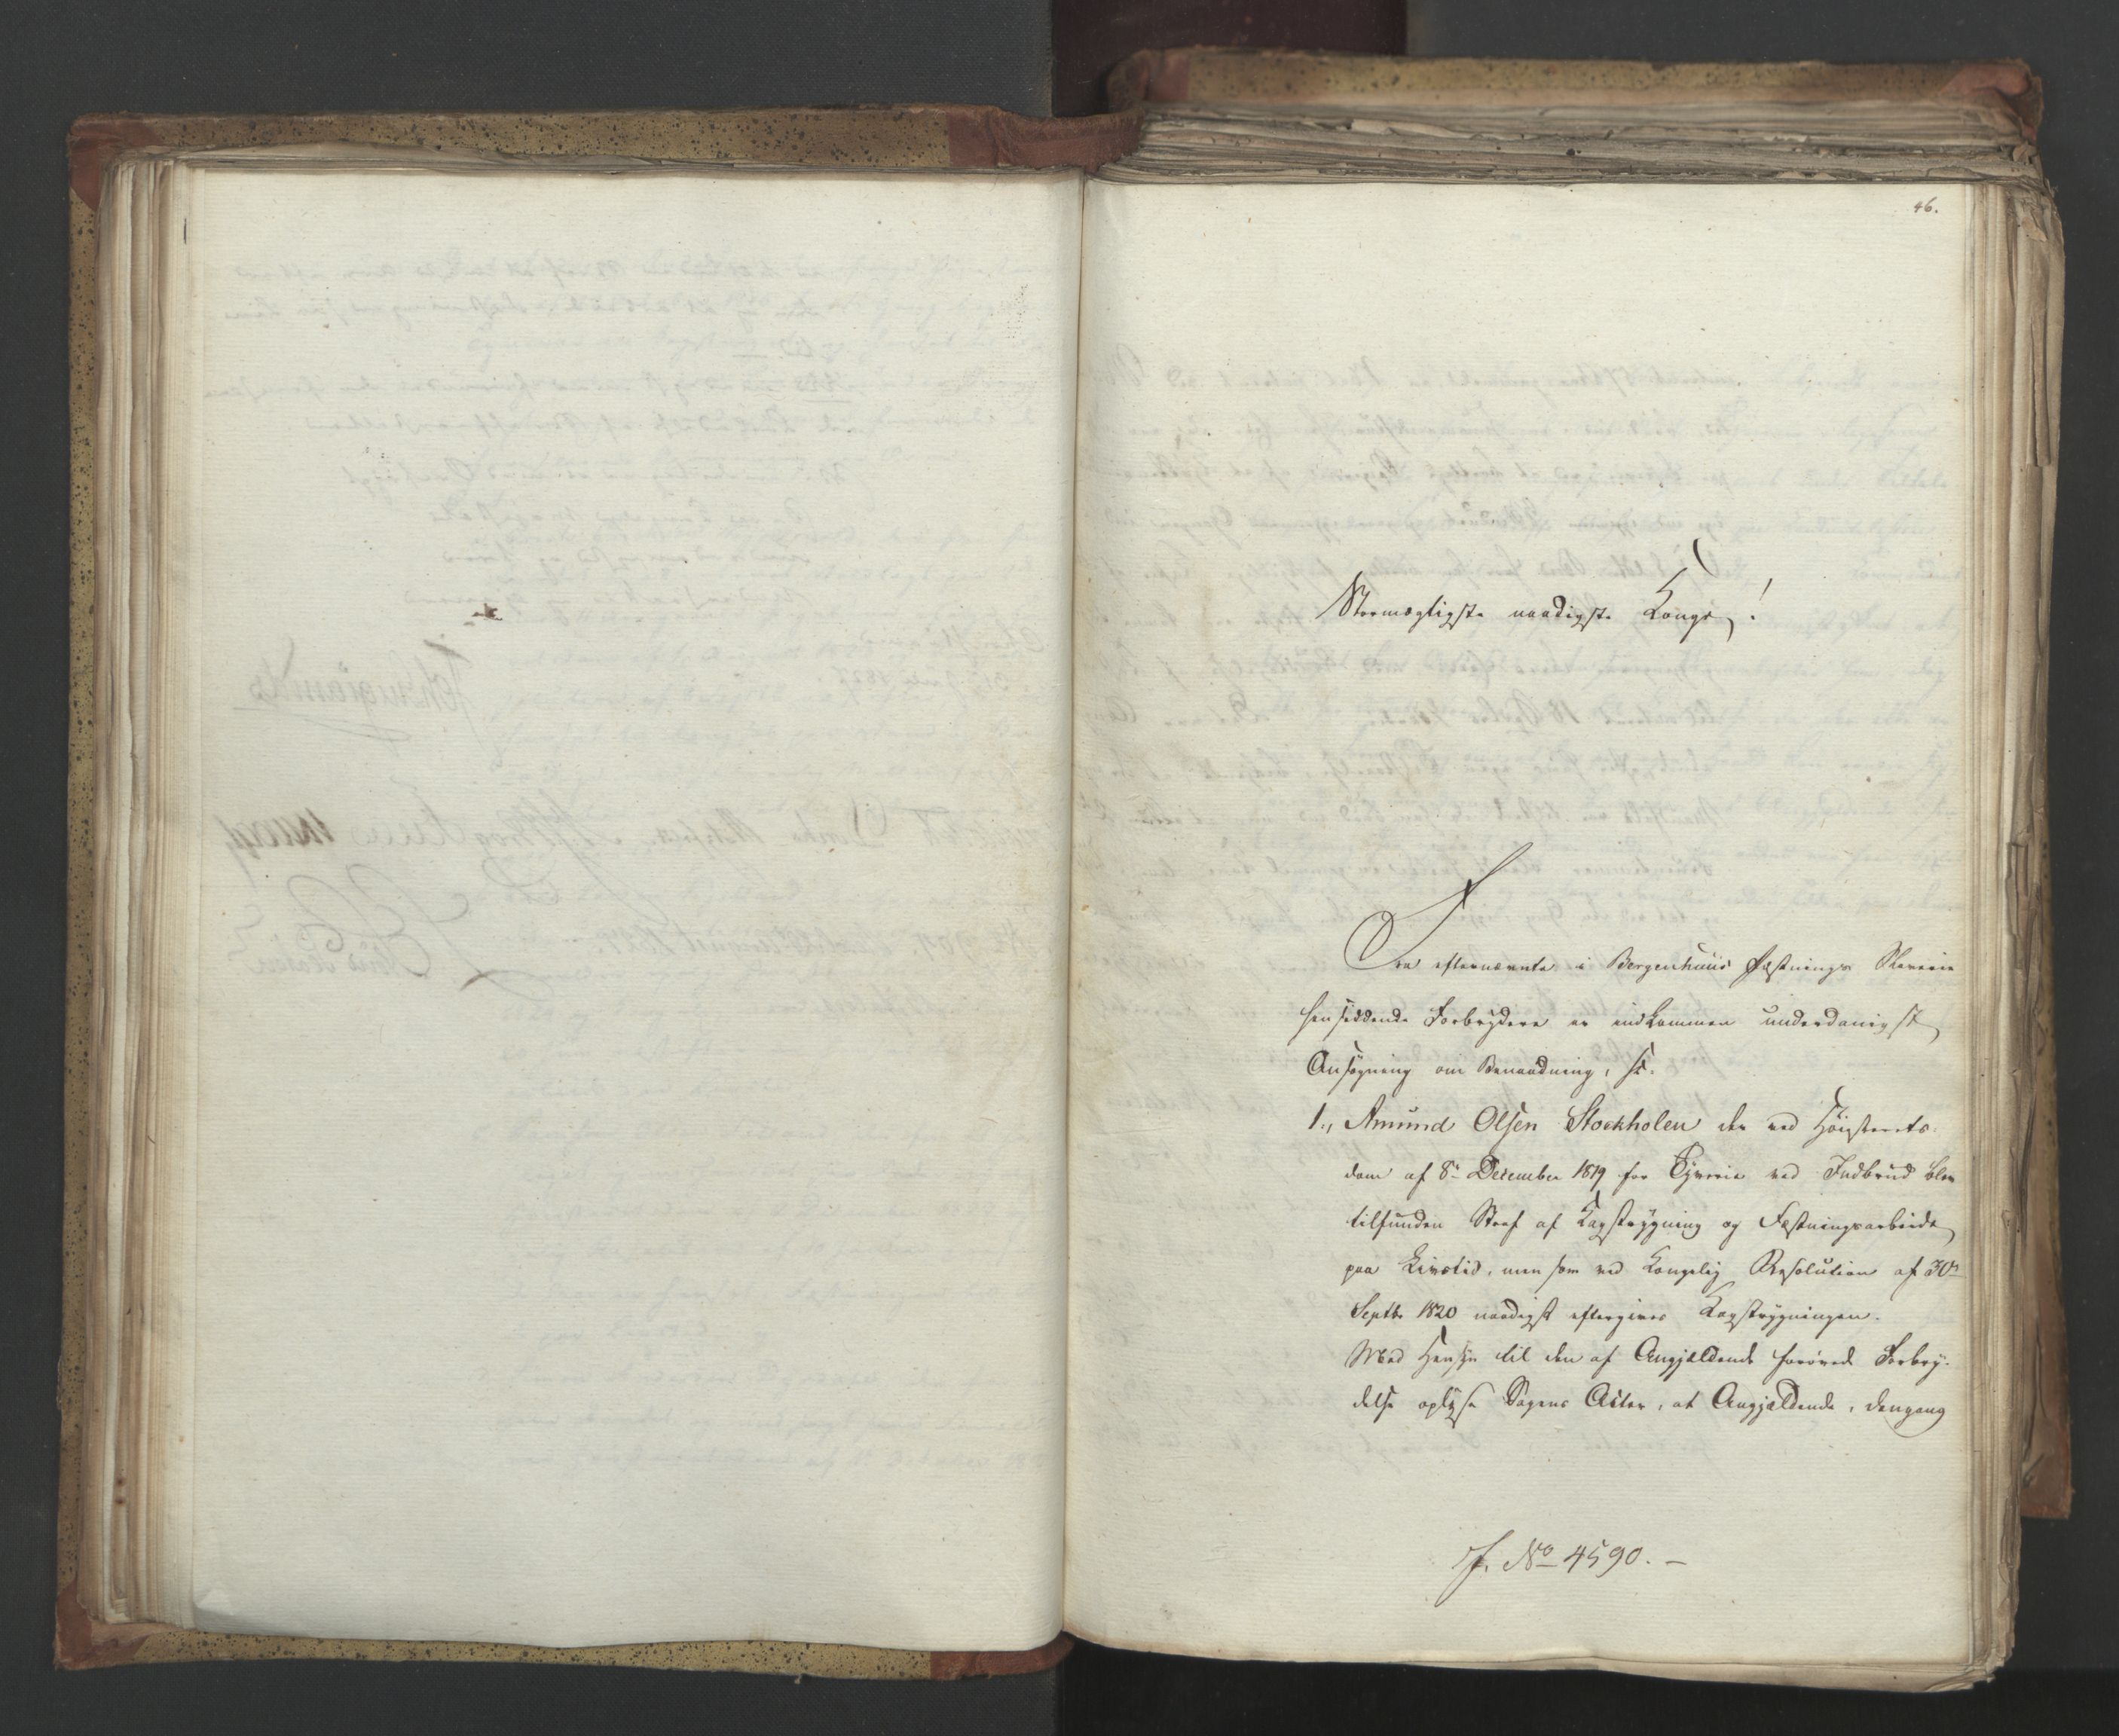 46.
Stormægtigste naadigste Konge!
Fra efternævnte i Bergenhuus Fæstnings Slaverie
hensiddende Forbrydere er indkommen underdanigst
Ansøgning om Benaadning, sc:
1., Amund Olsen Stockholen der ved Høiesterets-
dom af 8de December 1819 for Tyverie ved Indbrud blev
tilfunden Straf af Kagstrygning og Fæstningsarbeide
paa Livstid, men som ved Kongelig Resolution af 30te
Septbr 1820 naadigst eftergives Kagstrygningen.
Med Hensyn til den af Angjældende forøvede Forbry-
delse oplyse Sagens Acter, at Angjældende, dengang
J. No 4590. –